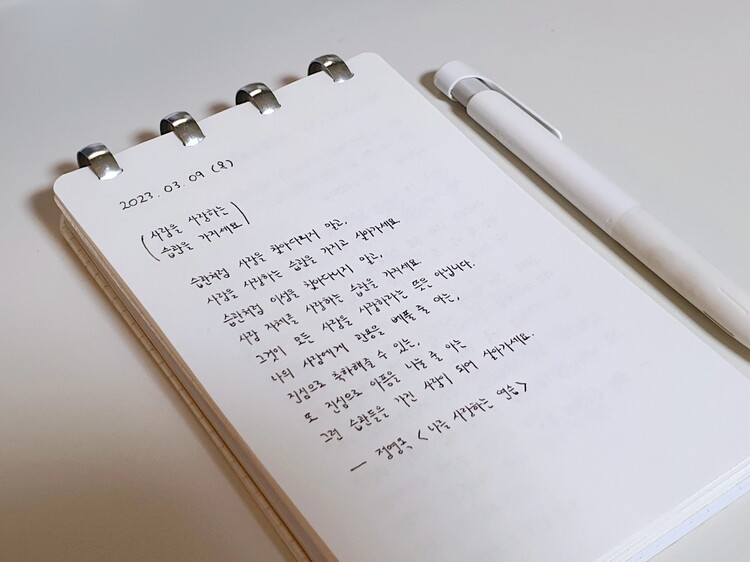 2023. 03. 09 (목)
(사람을 사랑하는
습관을 가지세요)
습관처럼 사랑을 찾아다니지 않고,
사람을 사랑하는 습관을 가지고 살아가세요.
습관처럼 이성을 찾아다니지 않고,
사람 자체를 사랑하는 습관을 가지세요.
그것이 모든 사람을 사랑하라는 뜻은 아닙니다.
나의 사람에게 관용을 베풀 줄 아는,
진심으로 축하해줄 수 있는,
또 진심으로 아픔을 나눌 줄 아는
그런 습관들을 가진 사람이 되어 살아가세요.
— 정영욱, <나를 사랑하는 연습>